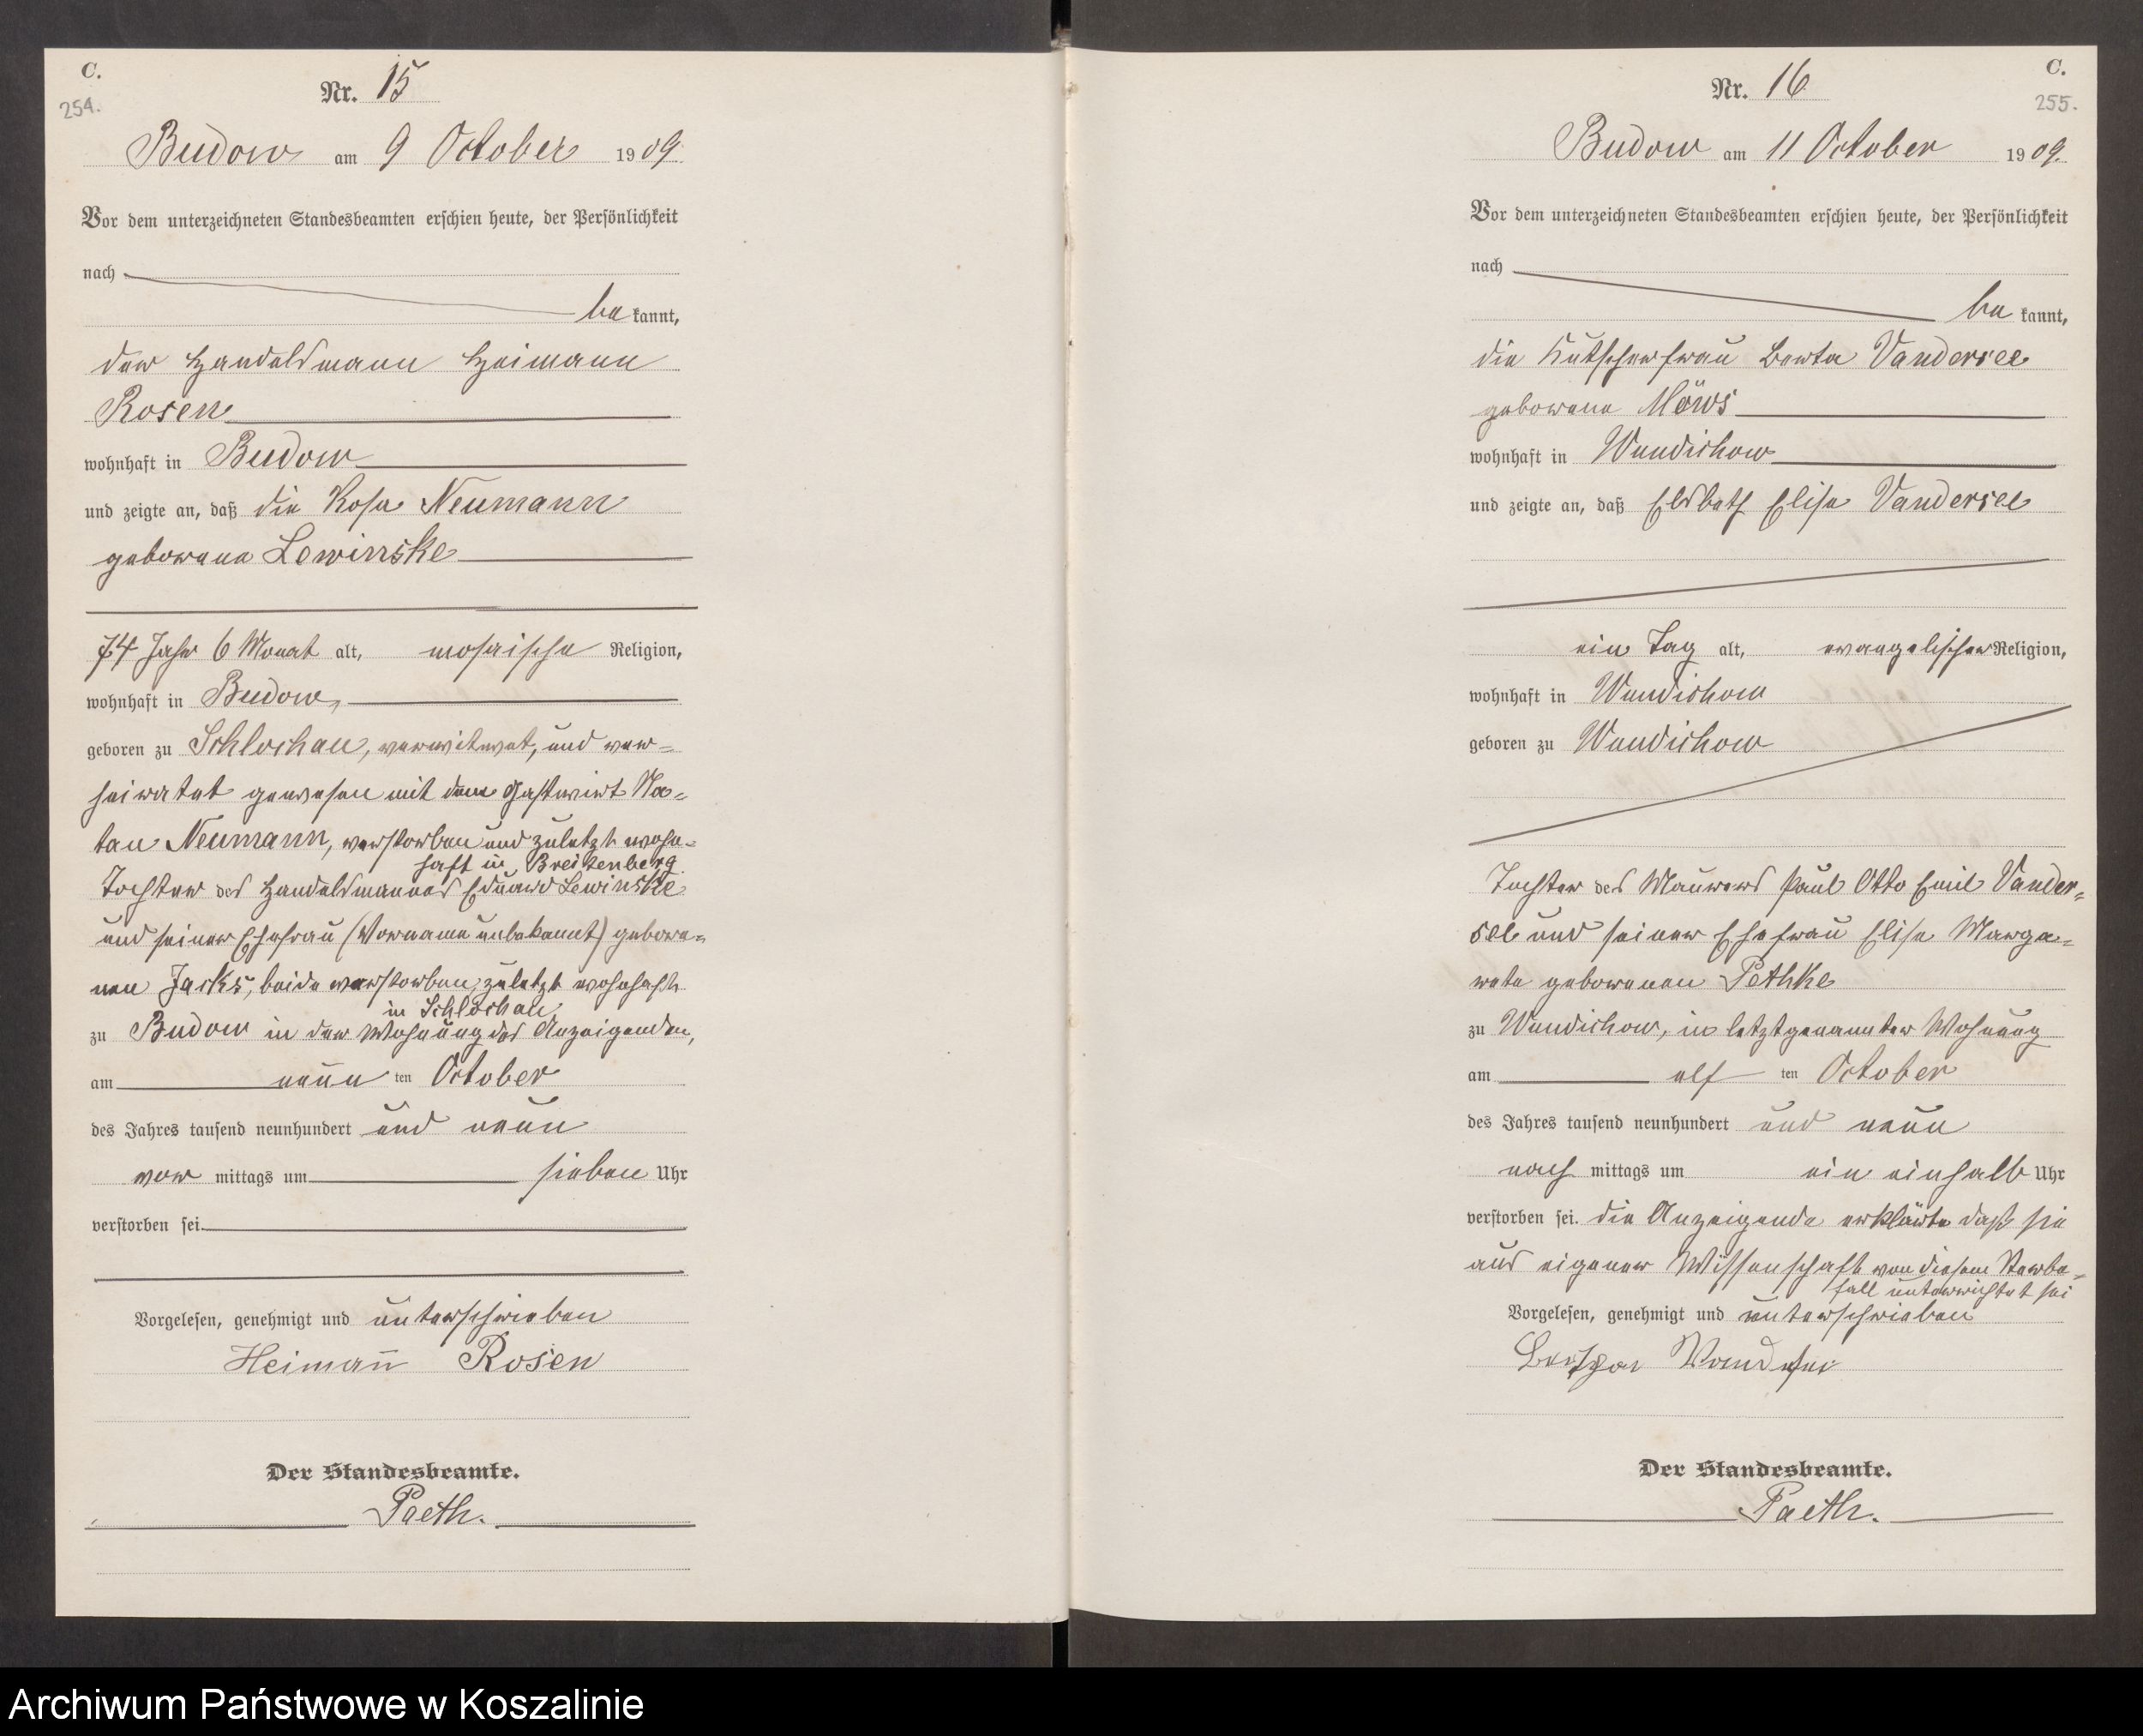 C.
254.
Nr. 15
Budow am 9 October 1909
Vor dem unterzeichneten Standesbeamten erschien heute, der Persönlichkeit
nach
be kannt,
der Handelsmann Heimann
Rosen
wohnhaft in Budow
und zeigte an, daß die Rosa Neumann
geborene Lewinske
74 Jahr 6 Monat alt, mosaische Religion,
wohnhaft in Budow,
geboren zu Schlochau, verwitwet, und ver=
heiratet gewesen mit dem Gastwirt Na=
tan Neumann, verstorben und zuletzt wohn=
haft in Breitenberg
Tochter des Handelsmannes Eduard Lewinske
und seiner Ehefrau (Vorname unbekannt) gebore=
nen Jacks, beide verstorben, zuletzt wohnhaft
in Schlochau
zu Budow in der Wohnung des Anzeigenden,
am neun ten October
des Jahres tausend neunhundert und neun
vor mittags um sieben Uhr
verstorben sei.
Vorgelesen, genehmigt und unterschrieben
Heimann Rosen
Der Standesbeamte.
Paeth.
C.
255.
Nr. 16
Budow am 11 October 1909.
Vor dem unterzeichneten Standesbeamten erschien heute, der Persönlichkeit
nach
be kannt,
die Kutscherfrau Berta Vandersee
geborene Möws
wohnhaft in Wundichow
und zeigte an, daß Elsbeth Elise Vandersee
ein Tag alt, evangelischer Religion,
wohnhaft in Wundichow
geboren zu Wundichow
Tochter des Maurers Paul Otto Emil Vander=
see und seiner Ehefrau Elise Marga=
rete geborenen Pethke
zu Wundichow, in letztgenannter Wohnung
am elf ten October
des Jahres tausend neunhundert und neun
nach mittags um ein einhalb Uhr
verstorben sei. die Anzeigende erklärte daß sie
aus eigener Wissenschaft von diesem Sterbe=
fall unterrichtet sei
Vorgelesen, genehmigt und unterschrieben
Der Standesbeamte.
Paeth.
Archiwum Państwowe w Koszalinie